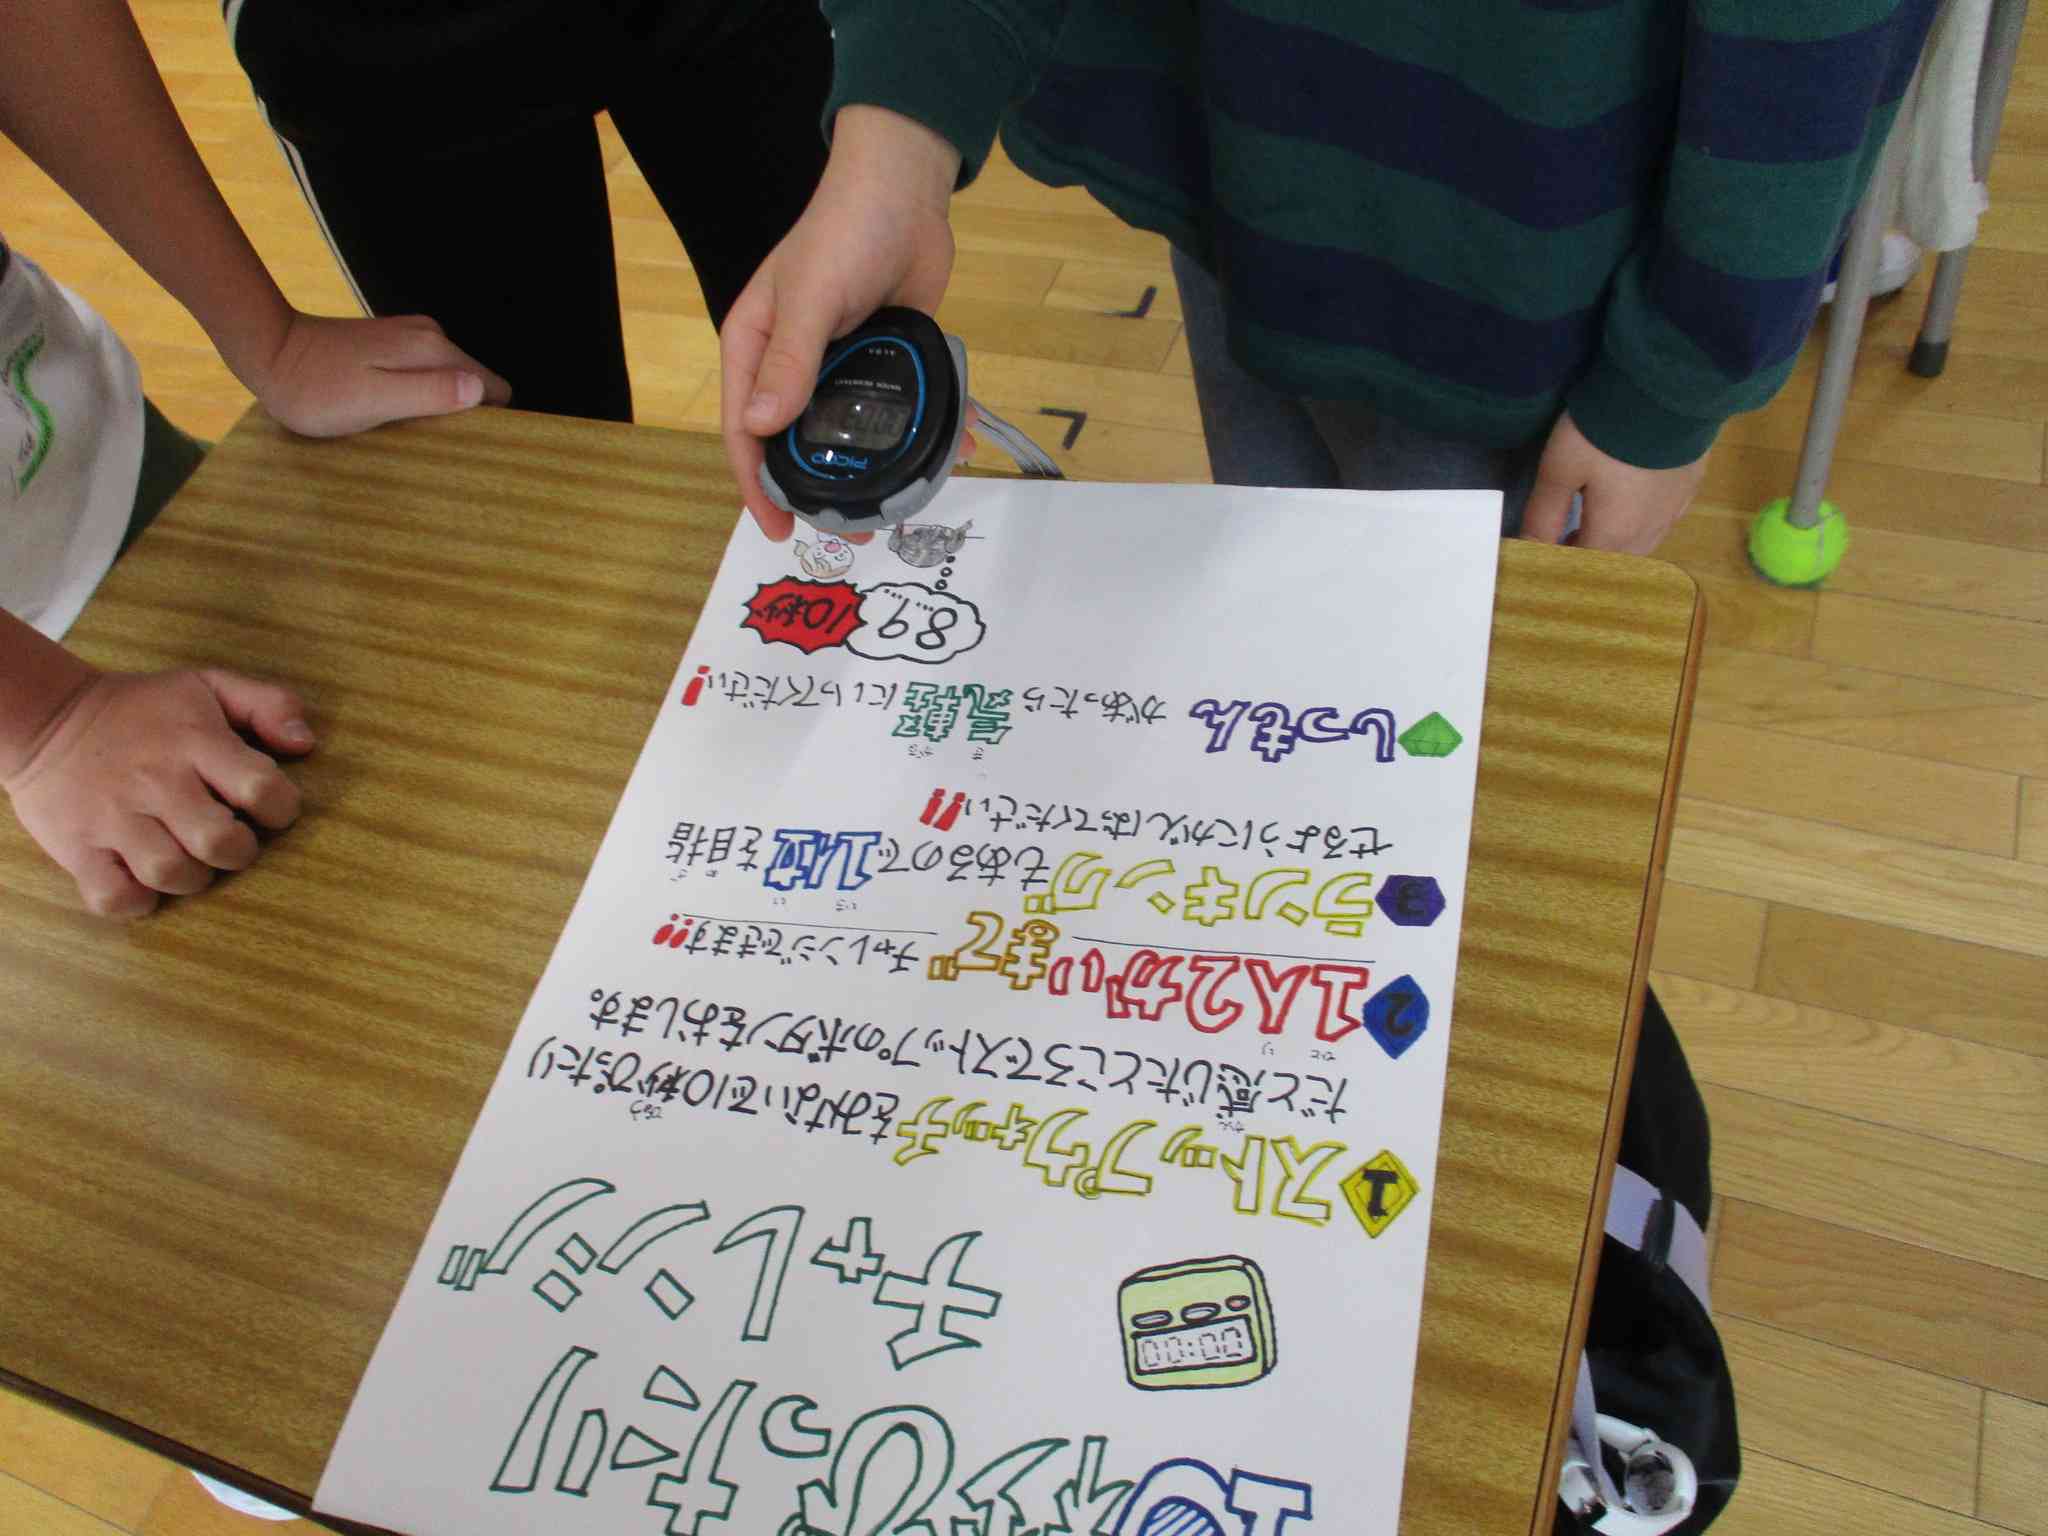 10秒ぴったり
チャレンジ
00:00
1 ストップウォッチをみないで10秒ぴったり
だと感じたところでストップのボタンをおします。
2 1人2かいまでチャレンジできます!!
3 ランキングもあるので1位を目指
せるようにがんばってください!!
しつもんがあったら にいってください!
8 9
10秒
PICCO
WATER RESISTANT
ALBA